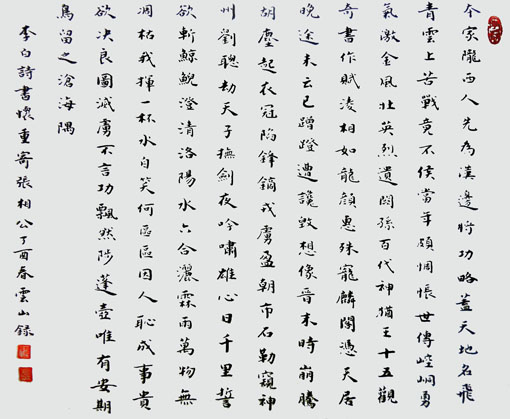 本家隴西人先為漢邊將功略蓋天地名飛
青雲上苦戰竟不侯當年頗惆悵世傳崆峒勇
氣激金風壯英烈遺厥孫百代神猶王十五觀
奇書作賦凌相如龍顏惠殊寵麟閣憑天居
晚途未云已蹭蹬遭讒毀想像晉末時崩騰
胡塵起衣冠陷鋒鏑戎虜盈朝市石勒窺神
州劉聰劫天子撫劍夜吟嘯雄心日千里誓
欲斬鯨鯢澄清洛陽水六合灑霖雨萬物無
凋枯我揮一杯水自笑何區區因人恥成事貴
欲決良圖滅虜不言功飄然陟蓬壺唯有安期
舄留之滄海隅
李白詩書懷重寄張相公丁酉春雲山錄